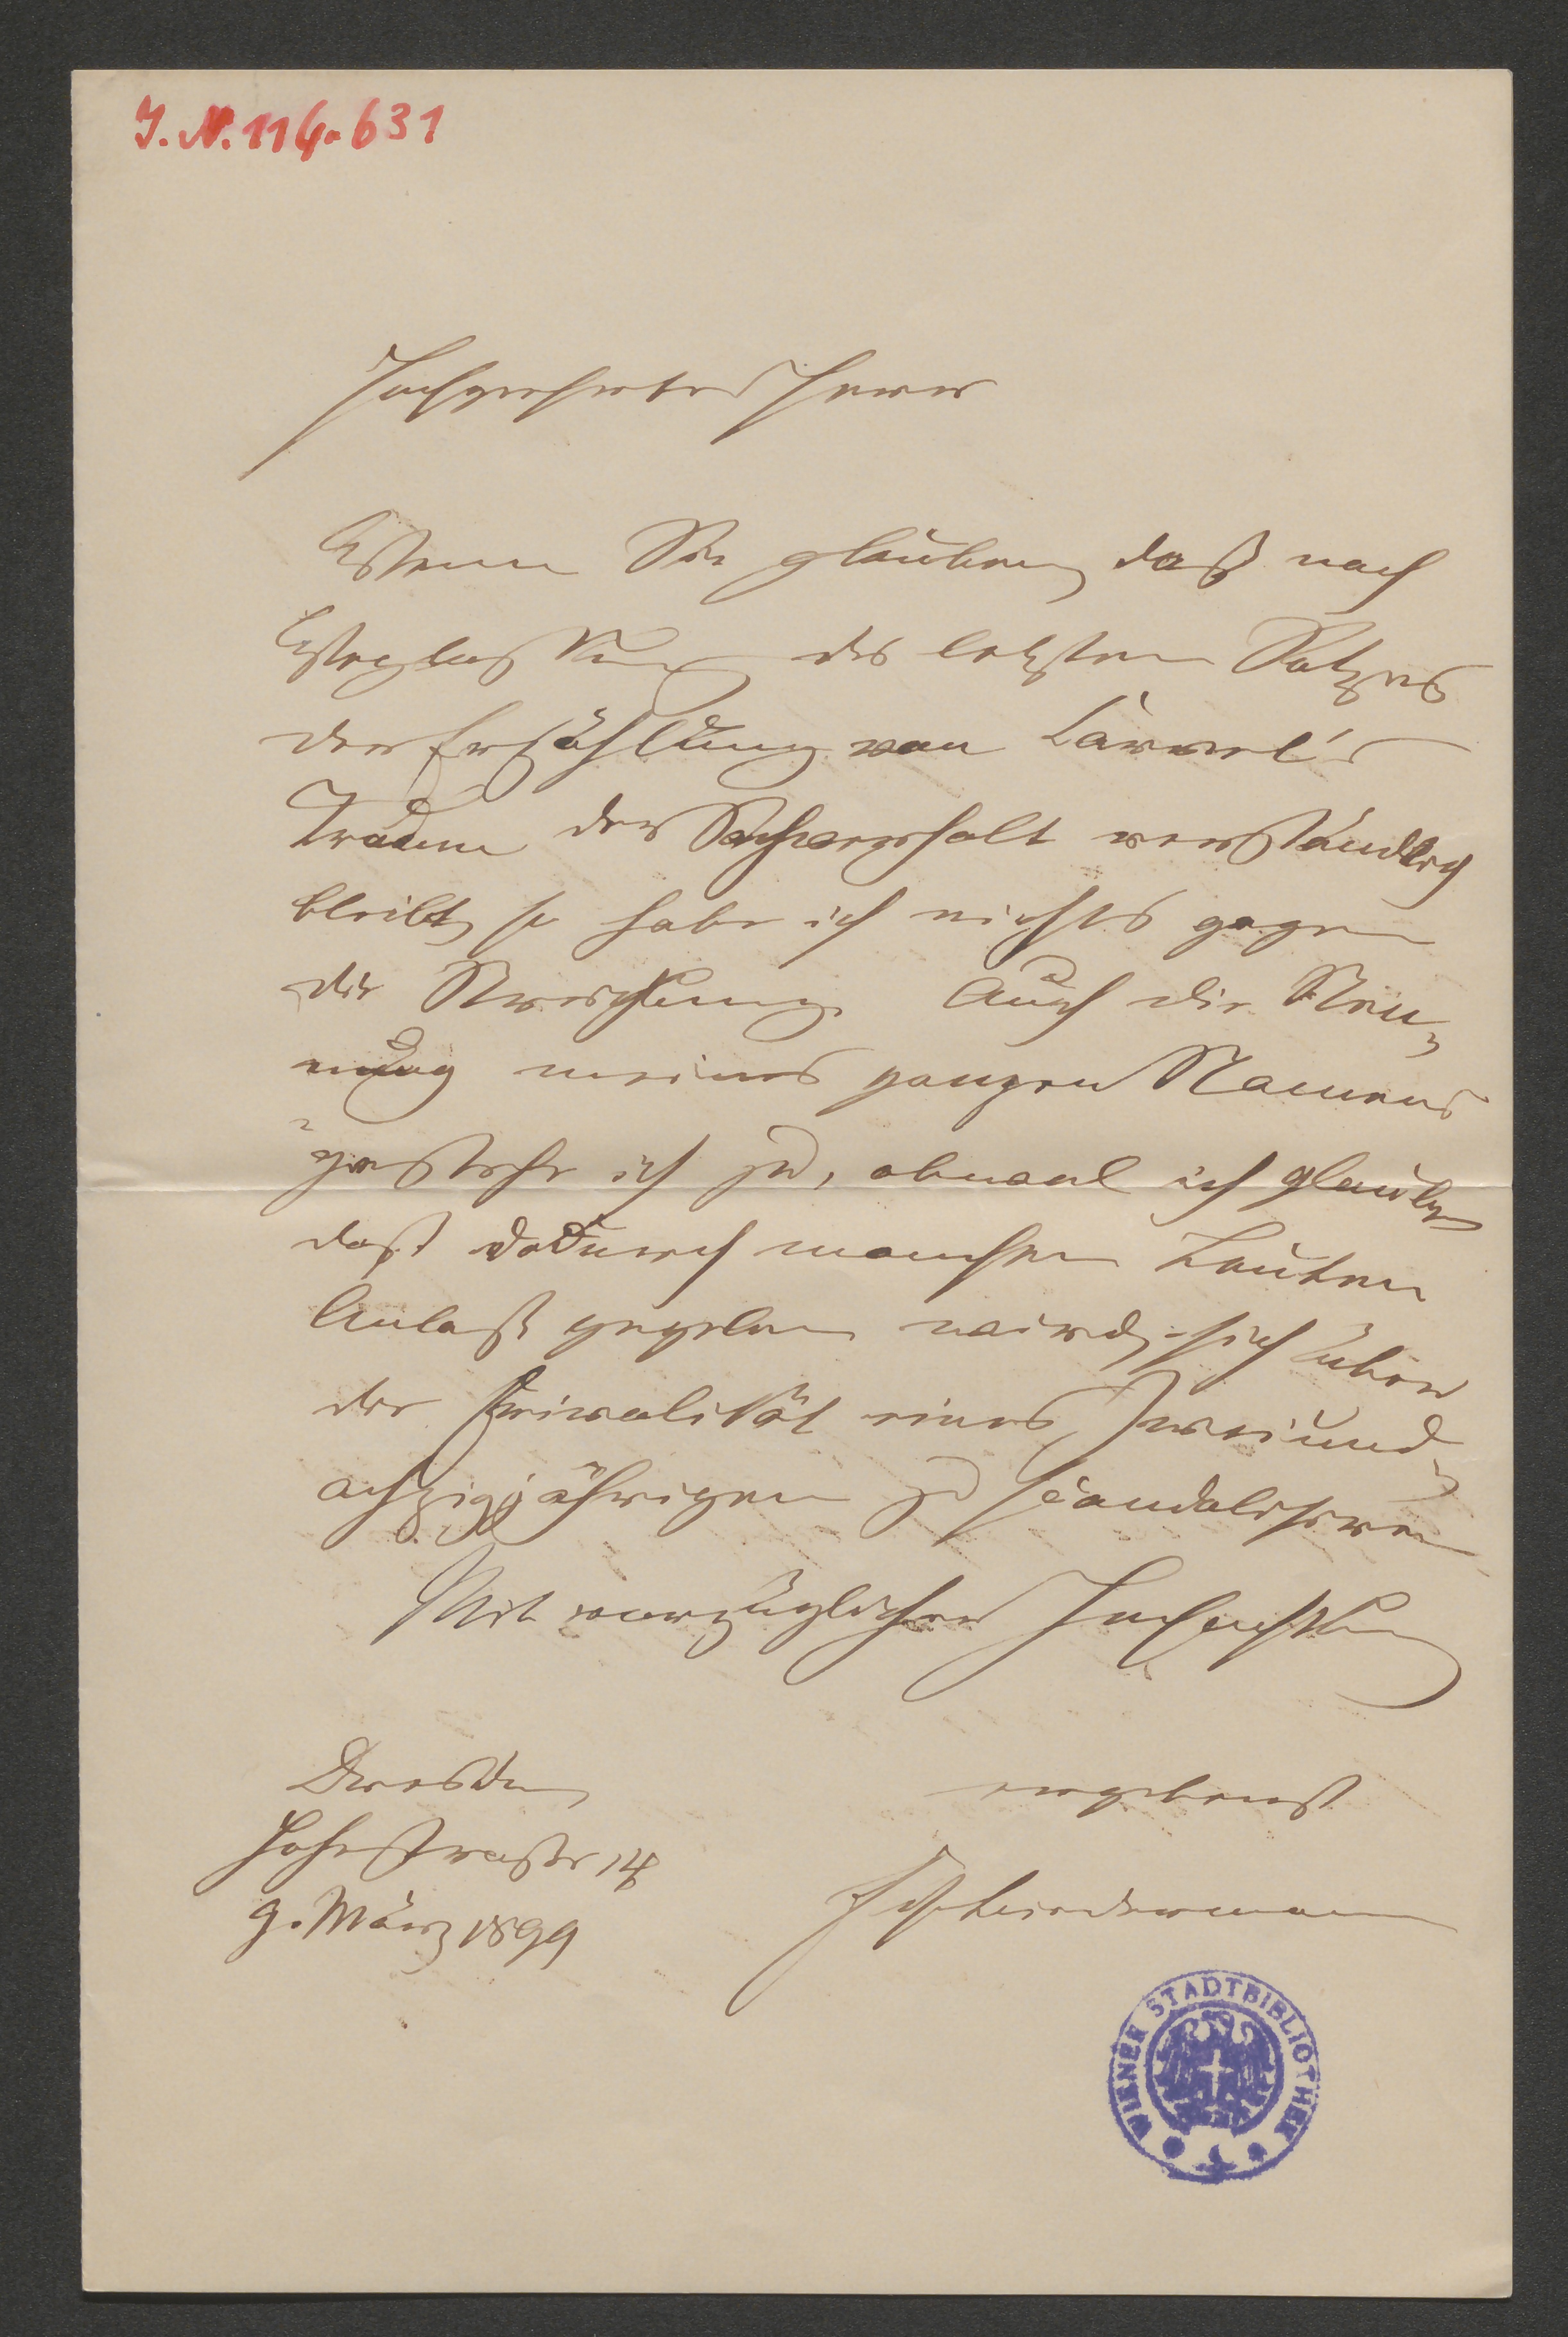 J. N. 114.631
Hochgeehrter Herr
Wenn Sie glauben, daß nach
Weglassung des letzten Satzes
der Erzählung von
Traum der Sachverhalt verständlich
bleibt, so habe ich nichts gegen
die Streichung. Auch die Nen-
nung meines ganzen Namens
gestehe ich zu, obwol ich glaube,
daß dadurch manchen Leuten
Anlaß gegeben wird, sich über
die Frivolität eines Zweiund-
achzigjährigen zu scandalisiren
Mit vorzüglicher Hochachtung
Dresden
ergebenst
Hohestraße 14
9. März 1899
Biedermann
WIENER STADTBIBLIOTHEK